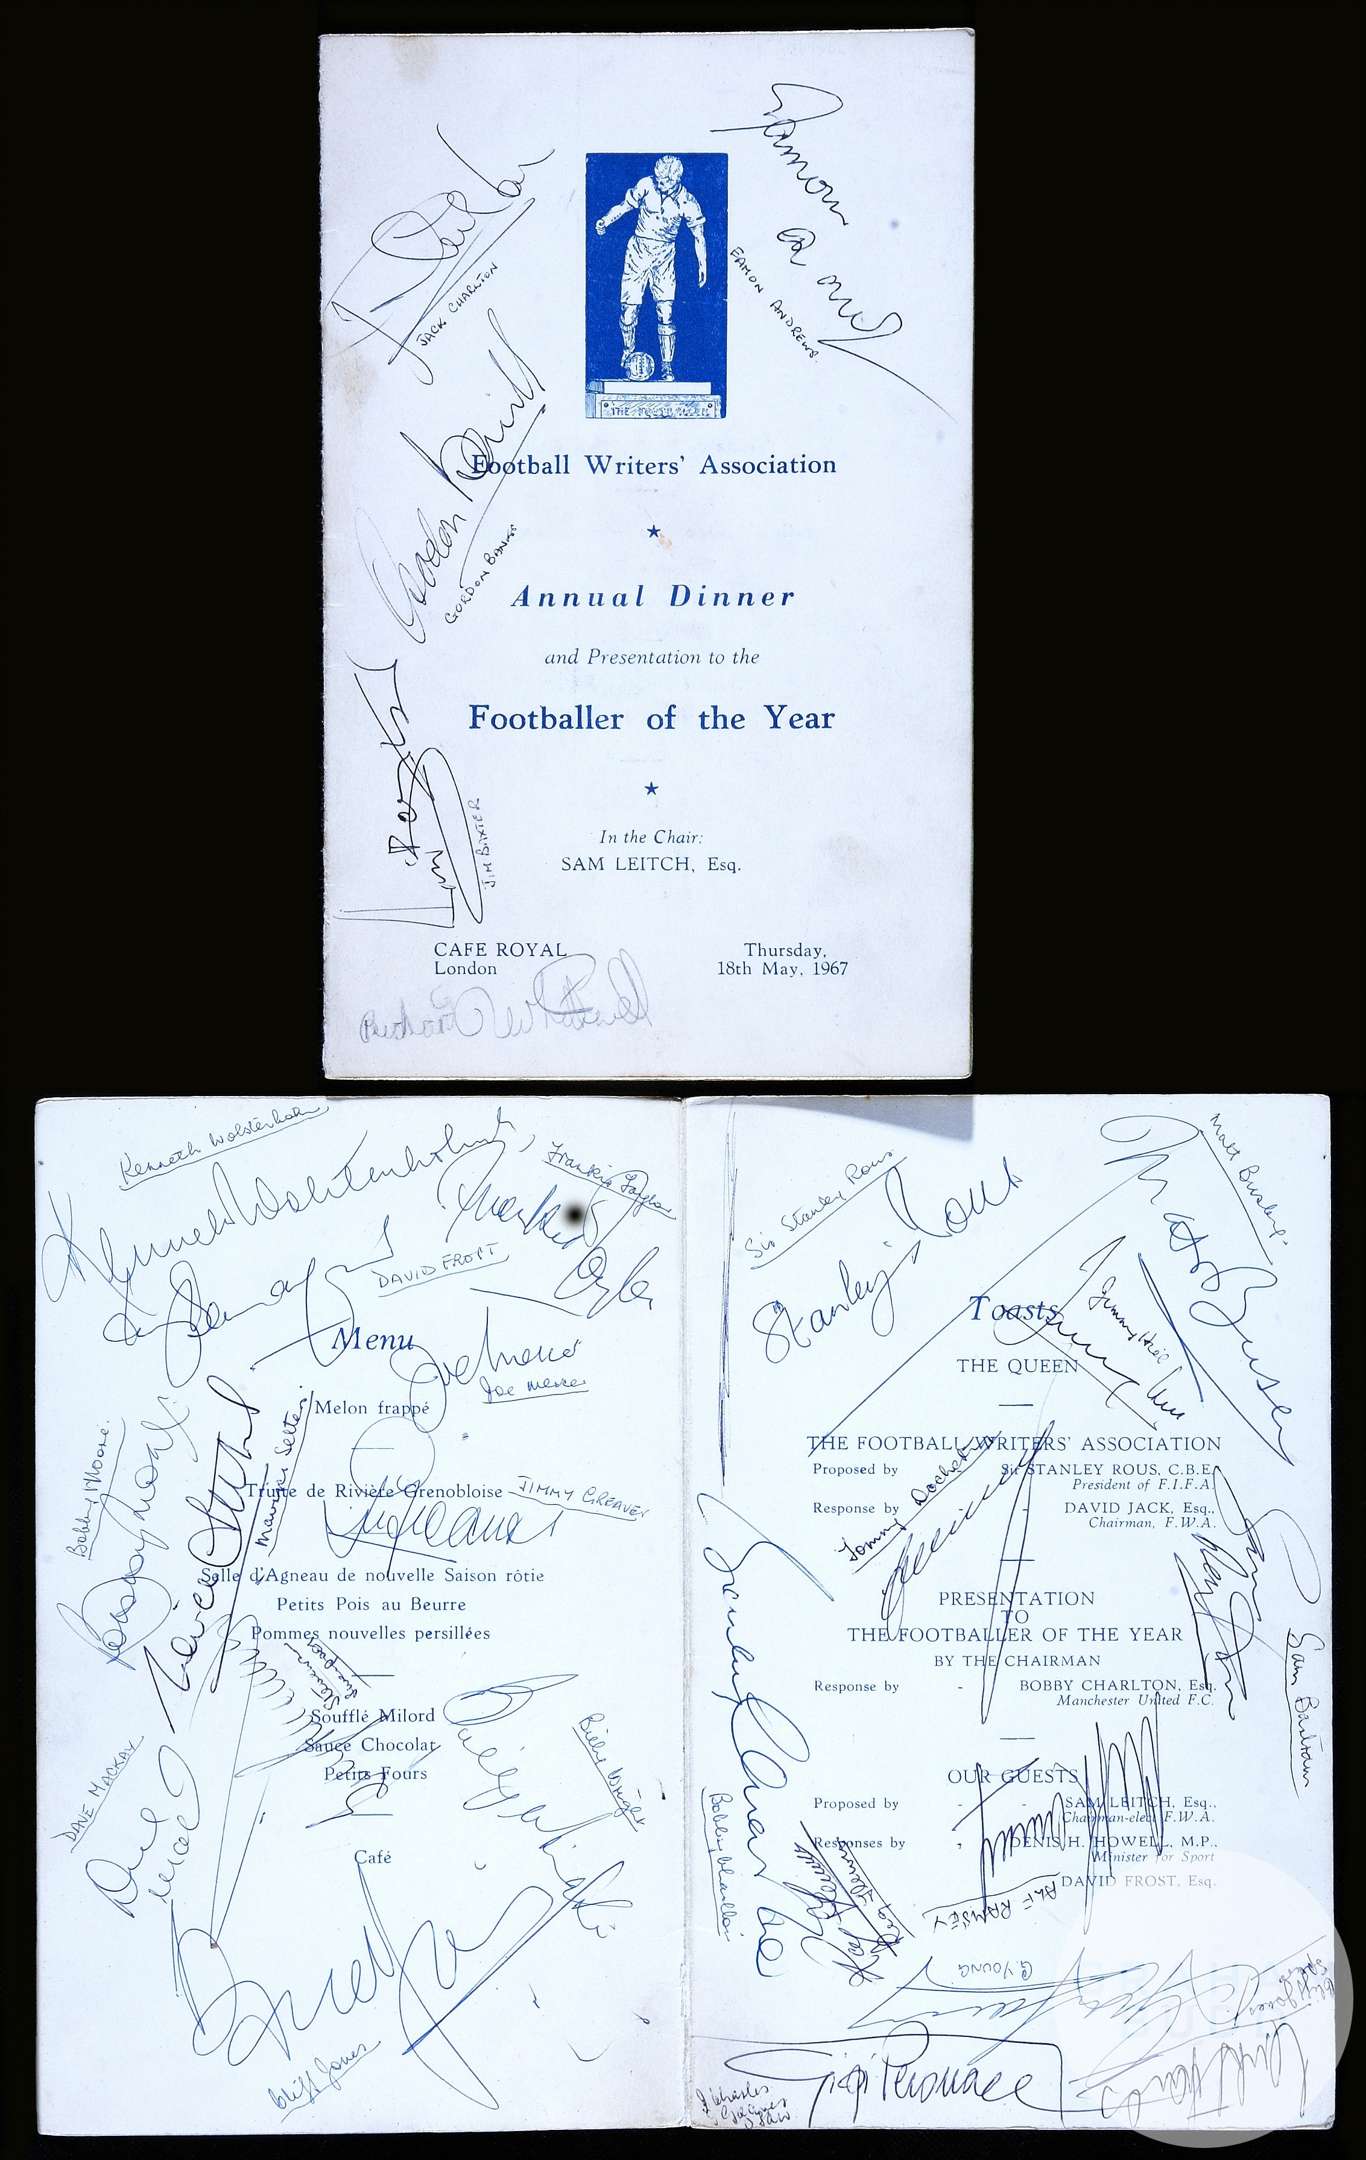 Eamonn Andrews
EAMON ANDREWS.
JACK CHARLTON
Gordon Banks
GORDON BANKS
THE FOOTBALLER
Football Writers' Association
Annual Dinner
and Presentation to the
Footballer of the Year
Jim Baxter
JIM BAXTER
In the Chair:
SAM LEITCH, Esq.
CAFE ROYAL
London
Thursday,
18th May, 1967
Kenneth Wolstenholm
Kenneth Wolstenholme
Frankie Taylor
DAVID FROST
Menu
Joe Mercer
Joe Mercer
Melon frappé
Maurice Setters
Bobby Moore.
Bobby Moore
Truite de Rivière Grenobloise
JIMMY GREAVES
Selle d'Agneau de nouvelle Saison rôtie
Petits Pois au Beurre
Pommes nouvelles persillées
Soufflé Milord
Sauce Chocolat
Petits Fours
Billy Wright
Billy Wright
DAVE MACKAY
Dave Mackay
Café
Cliff Jones
Sir Stanley Rous
Stanley Rous
Matt Busby.
Matt Busby
Toasts
Jimmy Hill
THE QUEEN
THE FOOTBALL WRITERS' ASSOCIATION
Proposed by Sir STANLEY ROUS, C.B.E.
President of F.I.F.A.
Response by - DAVID JACK, Esq.,
Chairman, F.W.A.
Tommy Docherty
PRESENTATION
TO
THE FOOTBALLER OF THE YEAR
BY THE CHAIRMAN
Response by - BOBBY CHARLTON, Esq.
Manchester United F.C.
Sam Bartram
Sam Bartram
OUR GUESTS
Proposed by - - SAM LEITCH, Esq.,
Chairman-elect F.W.A.
Responses by - DENIS H. HOWELL, M.P.,
Minister for Sport
DAVID FROST, Esq.
Bobby Charlton
ALF RAMSEY
G. YOUNG
Cliff Jones
Spurs
Gigi Peronace